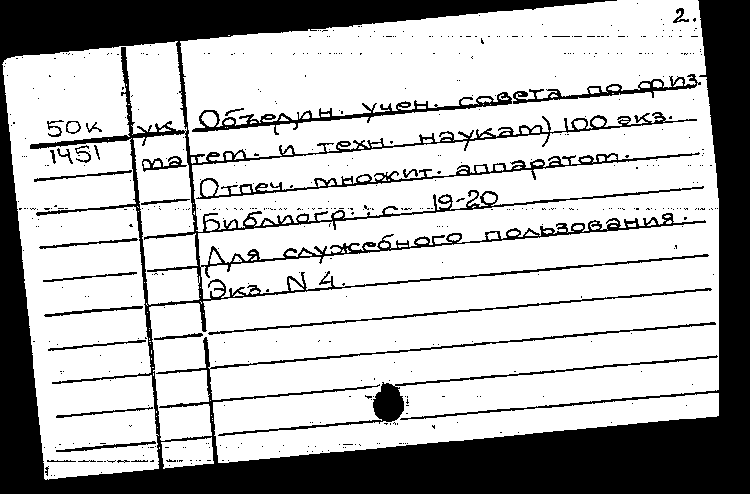 2.
50к ук Объедин. учен. совета по физ.-
1451 матем. и техн. наукам) 100 экз.
Отпеч. множит. аппаратом.
Библиогр.: с 19-20
Для служебного пользования.
Экз. N 4.